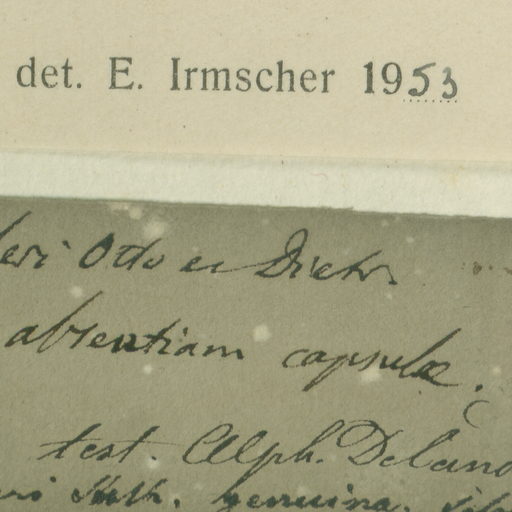 det. E. Irmscher 1953
Otto et Dietr.
absentiam capsulæ.
test. Alph. Decand
genuina.